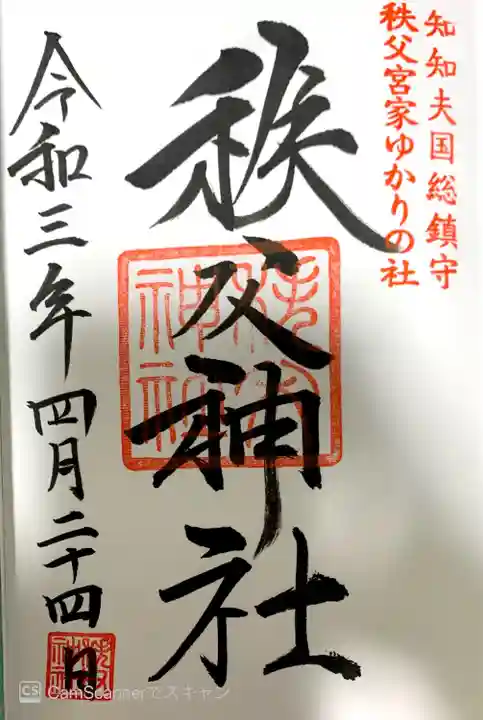 知知夫国総鎮守
秩父宮家ゆかりの社
秩父神社
令和三年四月二十四日
秩父神社
CS CamScannerでスキャン